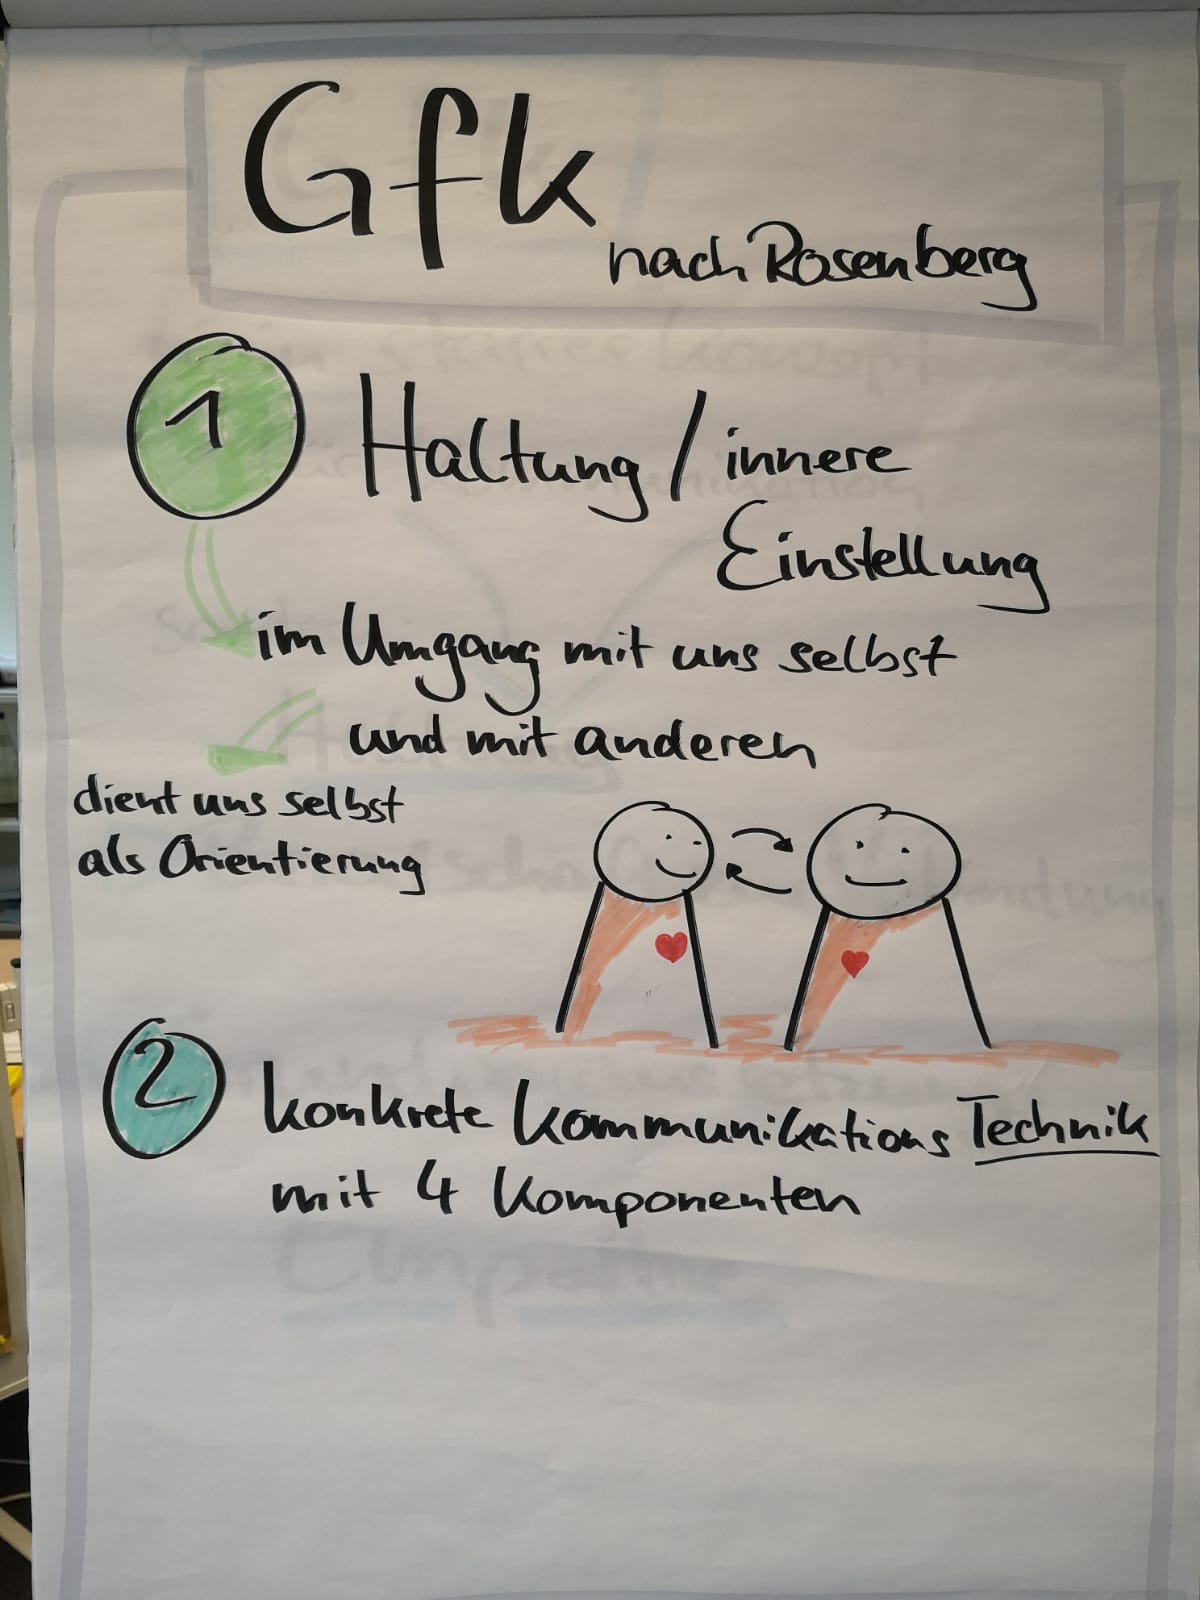 Gfk
nach Rosenberg
1 Haltung / innere
Einstellung
im Umgang mit uns selbst
und mit anderen
dient uns selbst
als Orientierung
2 konkrete Kommunikations Technik
mit 4 Komponenten